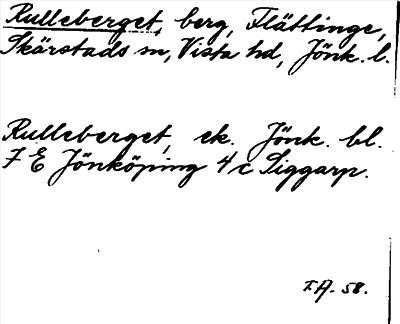 Rulleberget, berg, Flättinge,
Skärstads sn, Vista hd, Jönk. l.
Rulleberget, ek. Jönk. bl.
7 E Jönköping 4 c Siggarp.
T.A. 58.